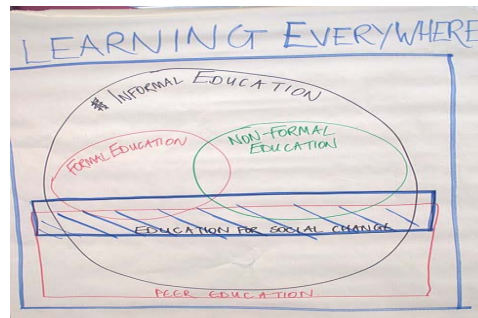 LEARNING EVERYWHERE
# INFORMAL EDUCATION
FORMAL EDUCATION
NON-FORMAL
EDUCATION
EDUCATION FOR SOCIAL CHANGE
PEER EDUCATION